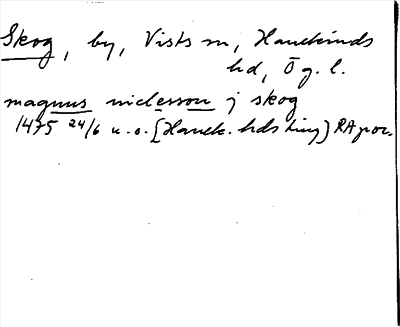 Skog, by, Vists sn, Hanekinds
hd, Ög.l.
magnus niclesson j skog
1475 24/6 u.o. [Hanek. hds ting] RA por.